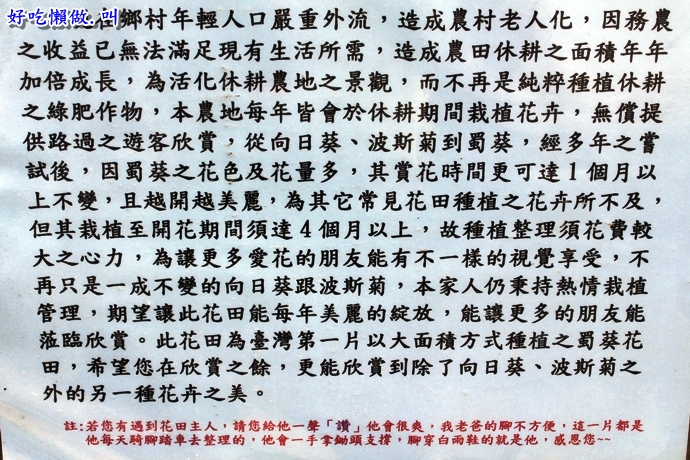 好吃懶做_叫
鄉村年輕人口嚴重外流，造成農村老人化，因務農
之收益已無法滿足現有生活所需，造成農田休耕之面積年年
加倍成長，為活化休耕農地之景觀，而不再是純粹種植休耕
之綠肥作物，本農地每年皆會於休耕期間栽植花卉，無償提
供路過之遊客欣賞，從向日葵、波斯菊到蜀葵，經多年之嘗
試後，因蜀葵之花色及花量多，其賞花時間更可達1個月以
上不變，且越開越美麗，為其它常見花田種植之花卉所不及，
但其栽植至開花期間須達4個月以上，故種植整理須花費較
大之心力，為讓更多愛花的朋友能有不一樣的視覺享受，不
再只是一成不變的向日葵跟波斯菊，本家人仍秉持熱情栽植
管理，期望讓此花田能每年美麗的綻放，能讓更多的朋友能
蒞臨欣賞。此花田為臺灣第一片以大面積方式種植之蜀葵花
田，希望您在欣賞之餘，更能欣賞到除了向日葵、波斯菊之
外的另一種花卉之美。
註:若您有遇到花田主人，請您給他一聲「讚」他會很爽，我老爸的腳不方便，這一片都是
他每天騎腳踏車去整理的，他會一手拿鋤頭支撐，腳穿白雨鞋的就是他，感恩您~~